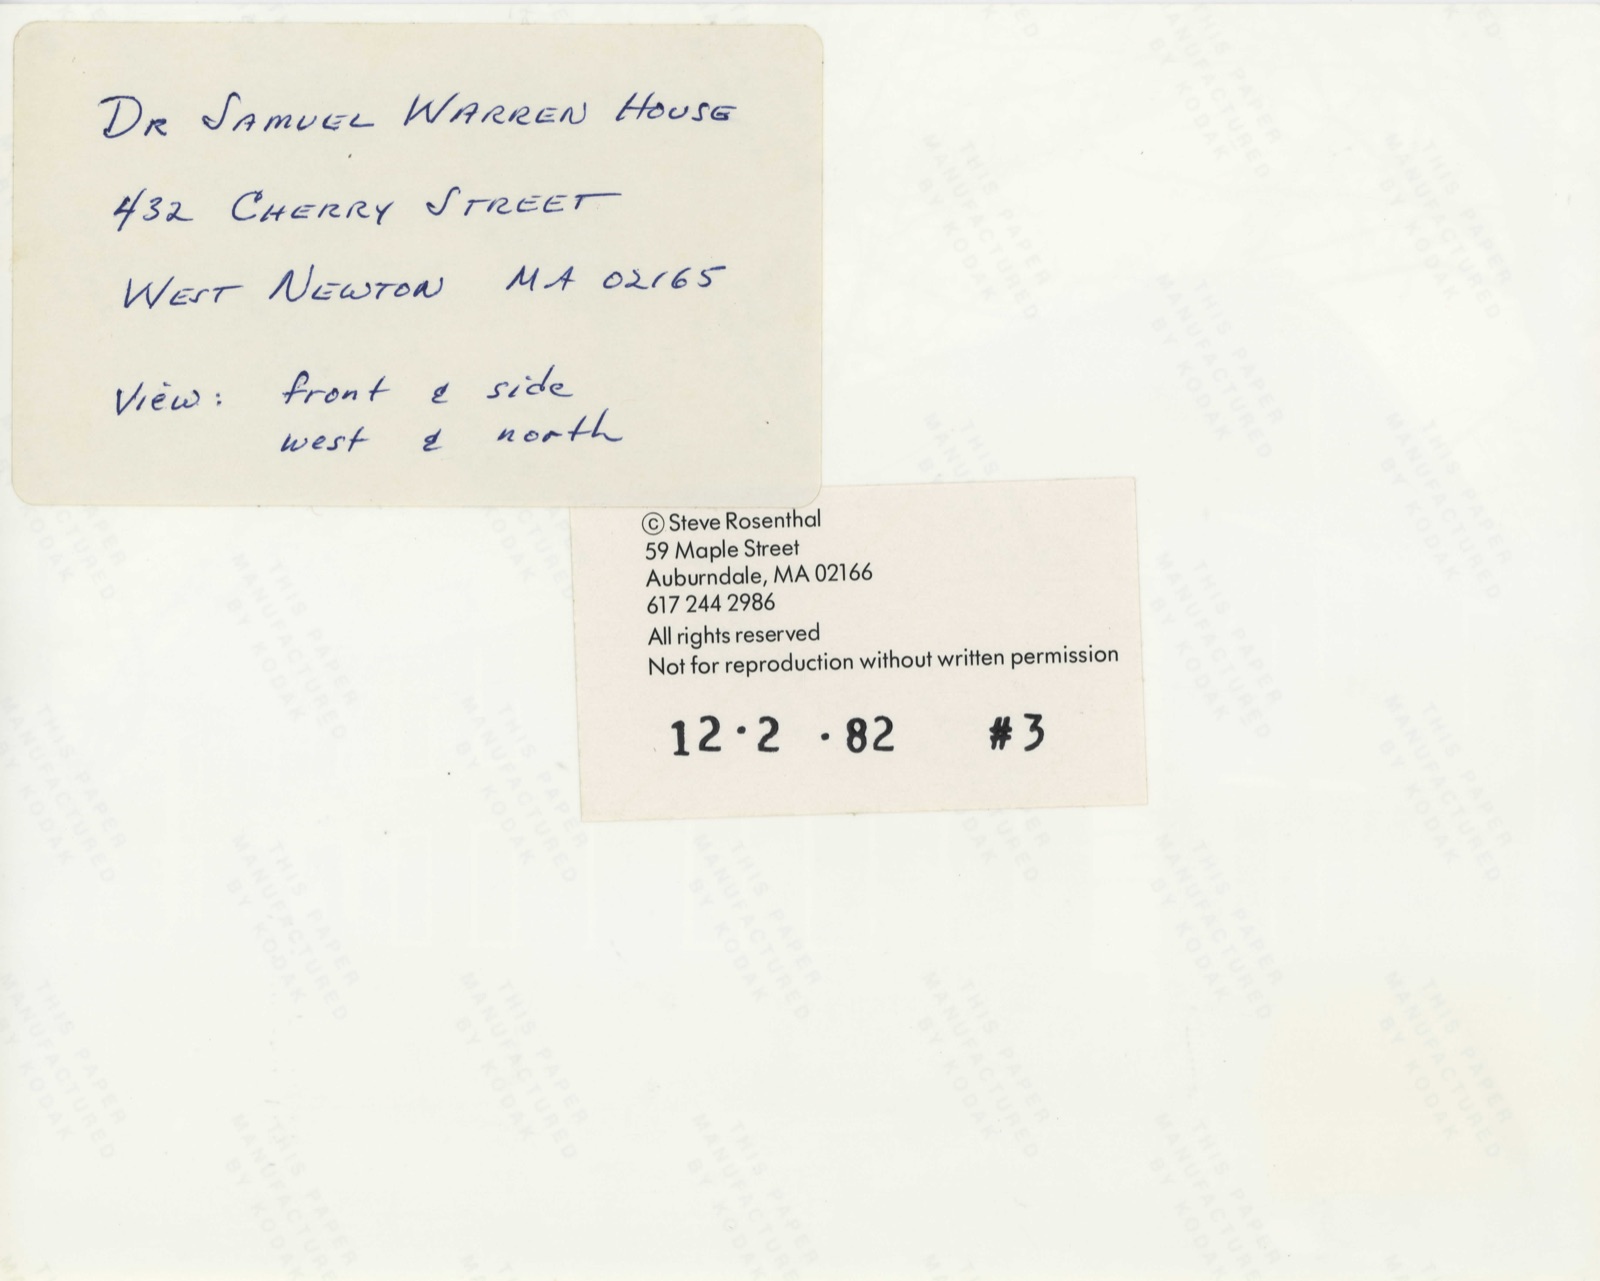 Dr Samuel Warren House
432 Cherry Street
West Newton MA 02165
View: front & side
west & north
© Steve Rosenthal
59 Maple Street
Auburndale, MA 02166
617 244 2986
All rights reserved
Not for reproduction without written permission
12·2 ·82 #3
THIS PAPER
MANUFACTURED
BY KODAK